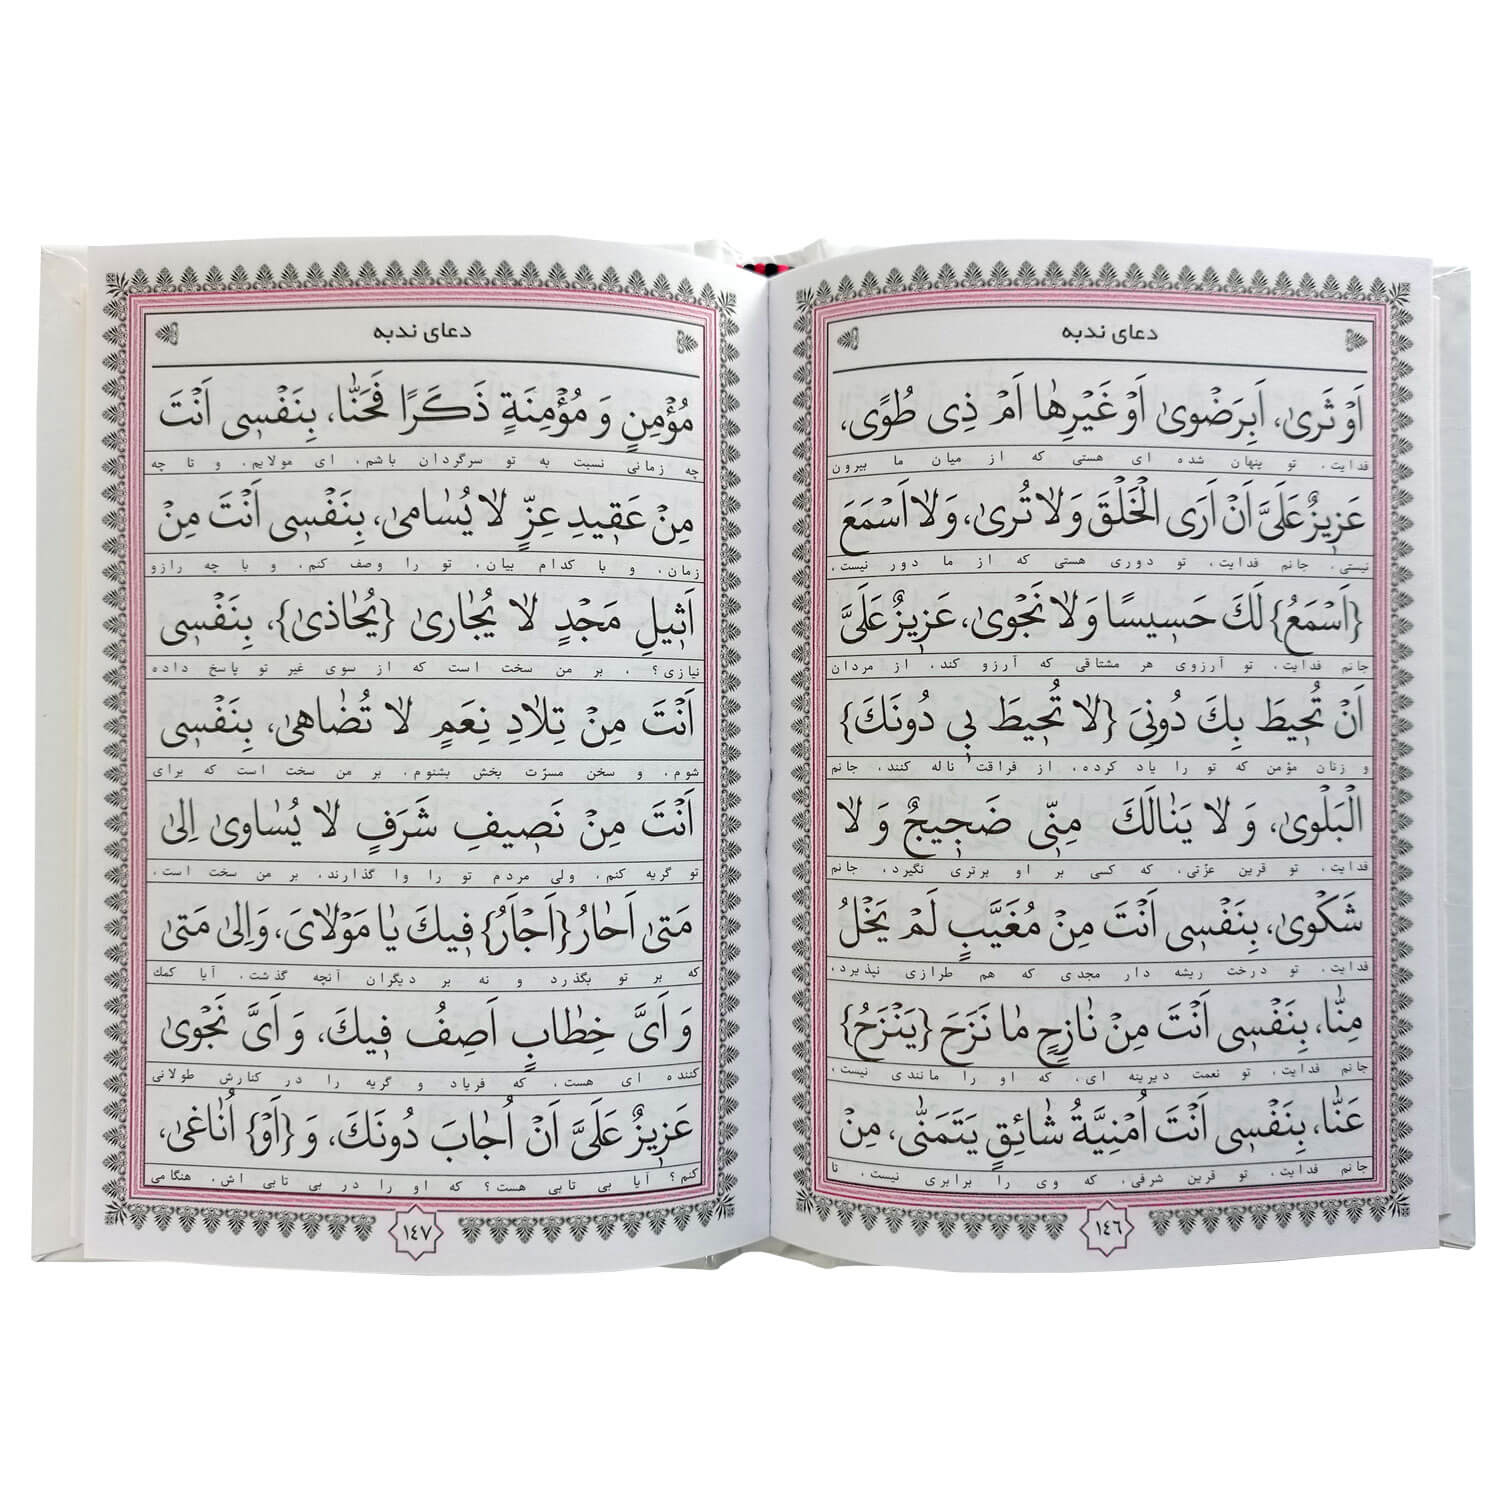 دعای ندبه
اَوْ ثَرىٰ، اَبِرَضْوىٰ اَوْ غَيْرِهٰا اَمْ ذِى طُوًى،
فدایت، تو پنهان شده ای هستی که از میان ما بیرون
عَزِيزٌ عَلَىَّ اَنْ اَرَى الْخَلْقَ وَلاٰ تُرىٰ، وَلاٰ اَسْمَعَ
نیستی، جانم فدایت، تو دوری هستی که از ما دور نیست،
{اَسْمَعُ} لَكَ حَسِيسًا وَلاٰ نَجْوىٰ، عَزِيزٌ عَلَىَّ
جانم فدایت، تو آرزوی هر مشتاقی که آرزو کند، از مردان
اَنْ تُحِيطَ بِكَ دُونِىَ {لاٰ تُحِيطَ بِى دُونَكَ}
و زنان مؤمن که تو را یاد کرده، از فراقت ناله کنند، جانم
الْبَلْوىٰ، وَ لاٰ يَنٰالَكَ مِنِّى ضَجِيجٌ وَ لاٰ
فدایت، تو قرین عزّتی، که کسی بر او برتری نگیرد، جانم
شَكْوىٰ، بِنَفْسِى اَنْتَ مِنْ مُغَيَّبٍ لَمْ يَخْلُ
فدایت، تو درخت ریشه دار مجدی که هم طرازی نپذیرد،
مِنّٰا، بِنَفْسِى اَنْتَ مِنْ نٰازِحٍ مٰا نَزَحَ {يَنْزَحُ}
جانم فدایت، تو نعمت دیرینه ای، که او را مانندی نیست،
عَنّٰا، بِنَفْسِى اَنْتَ اُمْنِيَّةُ شٰائِقٍ يَتَمَنّٰى، مِنْ
جانم فدایت، تو قرین شرفی، که وی را برابری نیست، تا
١٤٦
دعای ندبه
مُؤْمِنٍ وَ مُؤْمِنَةٍ ذَكَرًا فَحَنّٰا، بِنَفْسِى اَنْتَ
چه زمانی نسبت به تو سرگردان باشم، ای مولایم، و تا چه
مِنْ عَقِيدِ عِزٍّ لاٰ يُسٰامىٰ، بِنَفْسِى اَنْتَ مِنْ
زمان، و با کدام بیان، تو را وصف کنم، و با چه رازو
اَثِيلِ مَجْدٍ لاٰ يُجٰارىٰ {يُحٰاذىٰ}، بِنَفْسِى
نیازی؟ ، بر من سخت است که از سوی غیر تو پاسخ داده
اَنْتَ مِنْ تِلاٰدِ نِعَمٍ لاٰ تُضٰاهىٰ، بِنَفْسِى
شوم، و سخن مسرّت بخش بشنوم، بر من سخت است که برای
اَنْتَ مِنْ نَصِيفِ شَرَفٍ لاٰ يُسٰاوىٰ اِلىٰ
تو گریه کنم، ولی مردم تو را وا گذارند، بر من سخت است،
مَتىٰ اَحٰارُ {اَجْاَرُ} فِيكَ يٰا مَوْلاٰىَ، وَاِلىٰ مَتىٰ
که بر تو بگذرد و نه بر دیگران آنچه گذشت، آیا کمک
وَ اَىَّ خِطٰابٍ اَصِفُ فِيكَ، وَ اَىَّ نَجْوىٰ
کننده ای هست، که فریاد و گریه را در کنارش طولانی
عَزِيزٌ عَلَىَّ اَنْ اُجٰابَ دُونَكَ، وَ {اَوْ} اُنٰاغىٰ،
کنم؟ آیا بی تابی هست؟ که او را در بی تابی اش، هنگامی
١٤٧